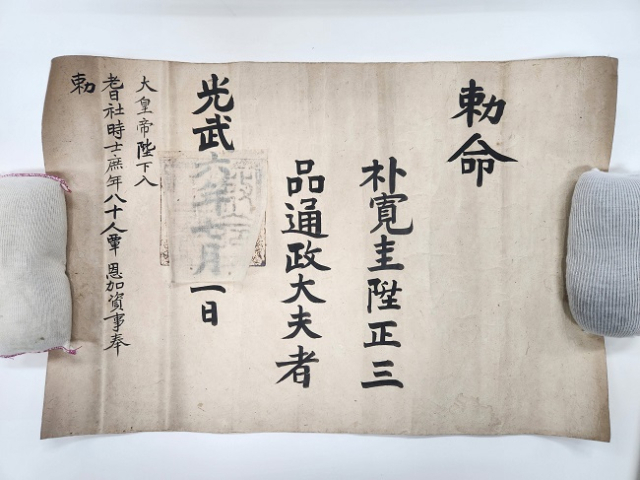 勅命
朴寬圭陞正三
品通政大夫者
光武六年七月一日
大皇帝陛下入
耆社時士庶年八十人覃恩加資事奉
勅